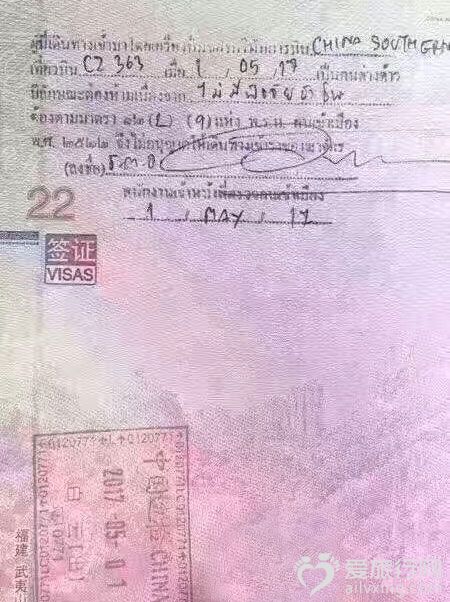 ผู้ที่เดินทางเข้ามาโดย CHINA SOUTHERN
เที่ยวบิน CZ 363 เมื่อ 1 , 05 , 17 เป็นคนต่างด้าว
มีลักษณะต้องห้ามเนื่องจาก
ต้องตามมาตรา ๑๒ (๙) แห่ง พ.ร.บ. คนเข้าเมือง
พ.ศ. ๒๕๒๒ จึงไม่อนุญาตให้เดินทางเข้าราชอาณาจักร
(ลงชื่อ)
พนักงานเจ้าหน้าที่ตรวจคนเข้าเมือง
1 , MAY , 17
22
签证
VISAS
中国边检 CHINA
2017-05-01
福建 武夷山
爱旅行网
ailvxing.com